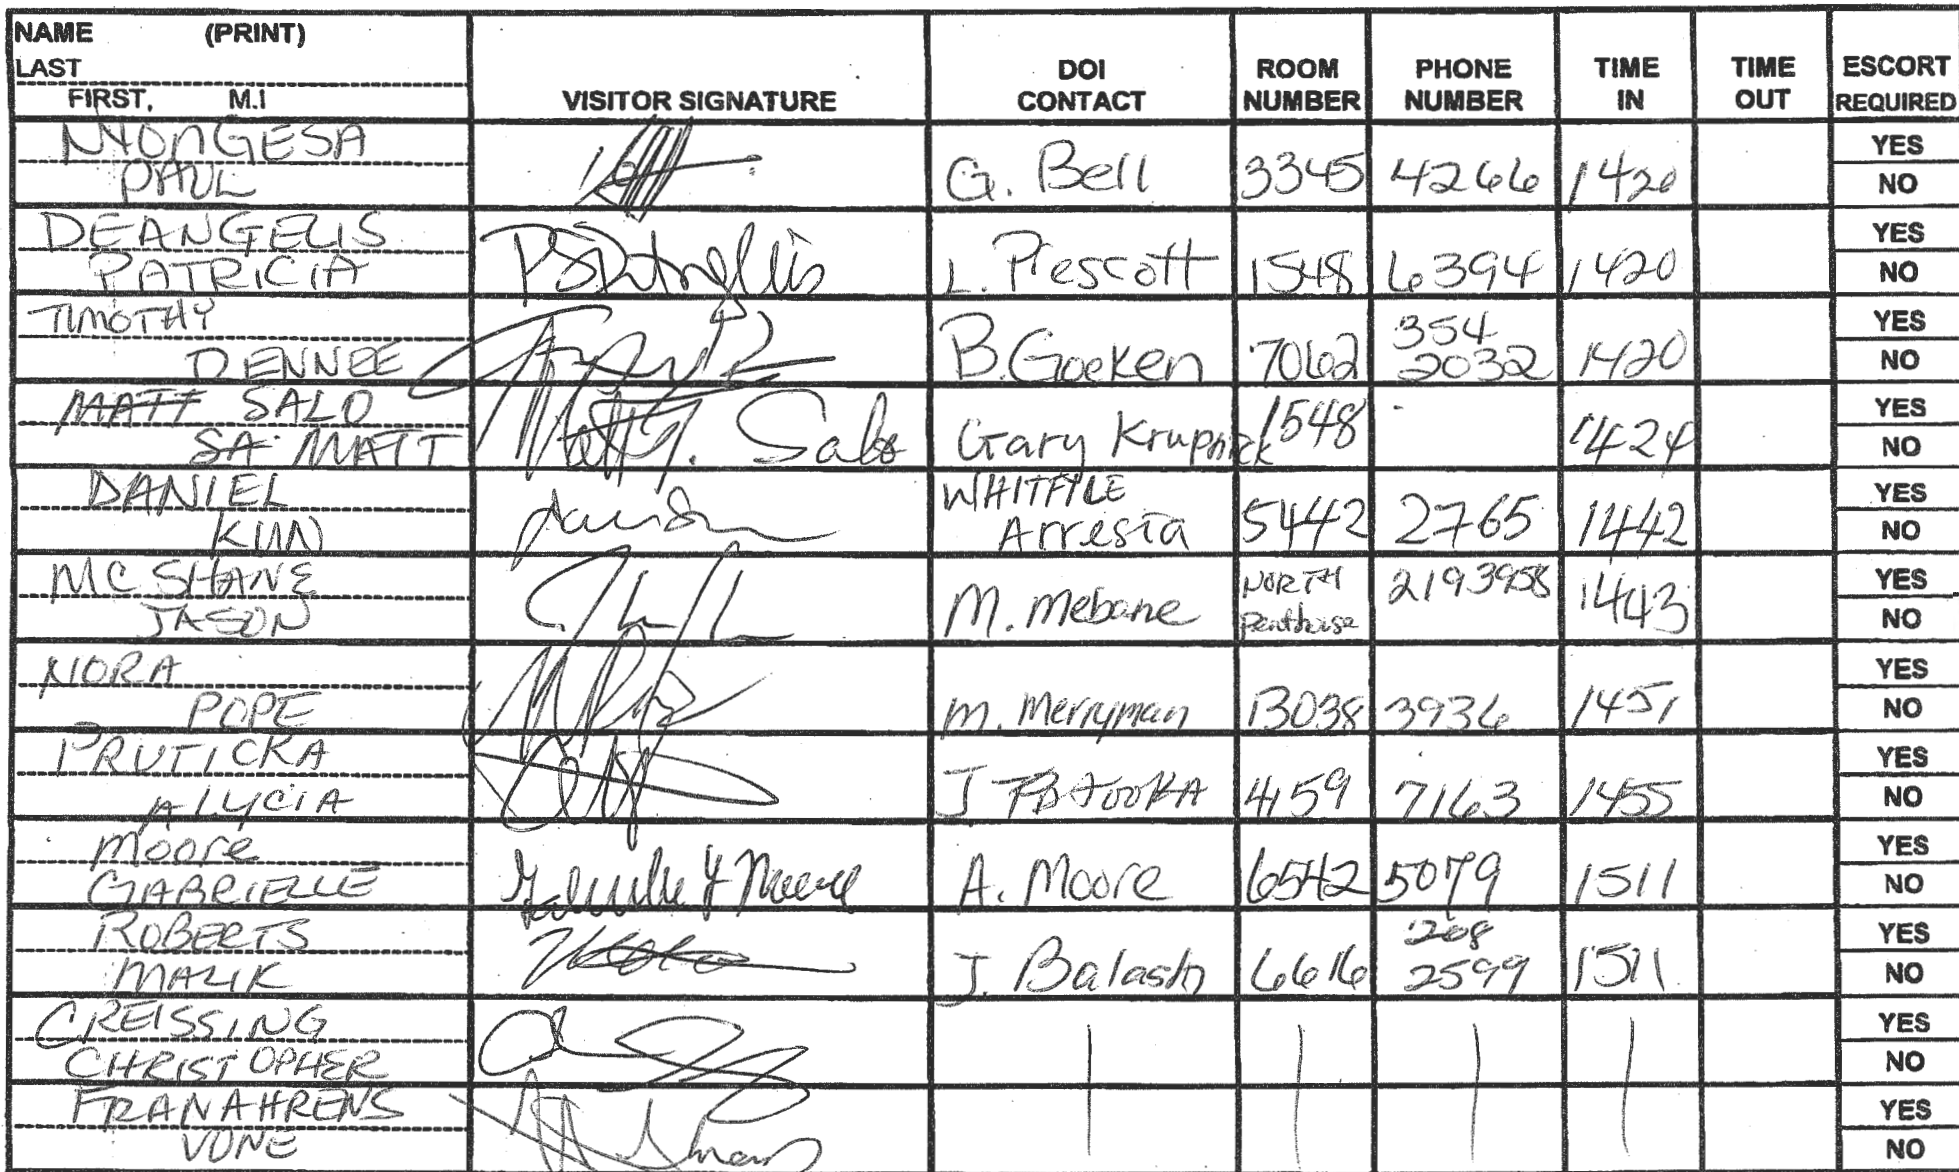 NAME (PRINT)
LAST
FIRST, M.I
VISITOR SIGNATURE
DOI CONTACT
ROOM NUMBER
PHONE NUMBER
TIME IN
TIME OUT
ESCORT REQUIRED
NYONGESA
PAUL
G. Bell 3345 4266 1420
YES
NO
DEANGELIS
PATRICIA
L. Prescott 1548 6394 1420
YES
NO
TIMOTHY
DENNEE
B. Goeken 7062 354 2032 1420
YES
NO
MATT SALO
SA MATT
Matt Salo Gary Krupnick 1548 1424
YES
NO
DANIEL
KUN
WHITFILE
Arresta 5442 2765 1442
YES
NO
MCSHANE
JASON
M. Mebane NORTH Penthouse 2193958 1443
YES
NO
NORA
POPE
M. Merryman 3936 1451
YES
NO
PRUTICKA
ALYCIA
J 4159 7163 1455
YES
NO
Moore
GABRIELLE
Moore A. Moore 6542 5079 1511
YES
NO
ROBERTS
MALIK
J. Balash 6616 208 2599 1511
YES
NO
CREISSING
CHRISTOPHER
YES
NO
FRANAHRENS
VONE
YES
NO